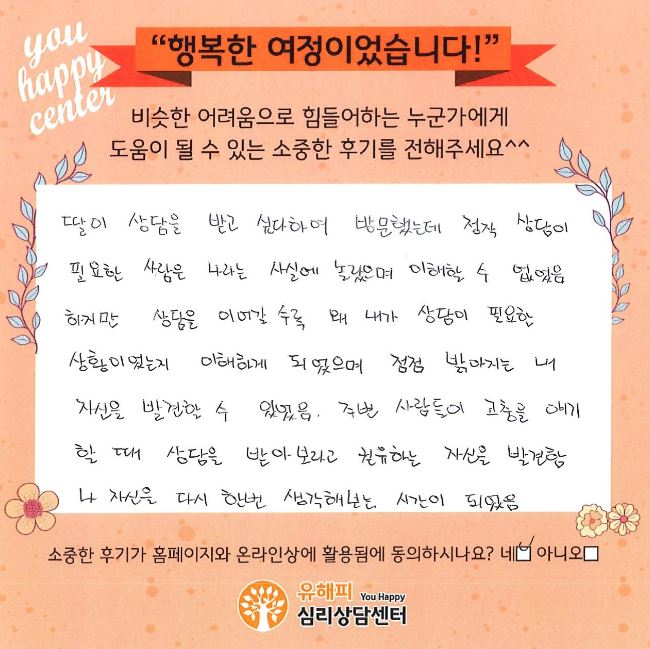 you
happy
center
“행복한 여정이었습니다!”
비슷한 어려움으로 힘들어하는 누군가에게
도움이 될 수 있는 소중한 후기를 전해주세요^^
딸이 상담을 받고 싶다하여 방문했는데 정작 상담이
필요한 사람은 나라는 사실에 놀랐으며 이해할 수 없었음
하지만 상담을 이어갈 수록 왜 내가 상담이 필요한
상황이였는지 이해하게 되었으며 점점 밝아지는 내
자신을 발견할 수 있었음. 주변 사람들이 고충을 얘기
할 때 상담을 받아보라고 권유하는 자신을 발견함
나 자신을 다시 한번 생각해보는 시간이 되었음
소중한 후기가 홈페이지와 온라인상에 활용됨에 동의하시나요? 네☑ 아니오□
유해피 You Happy
심리상담센터